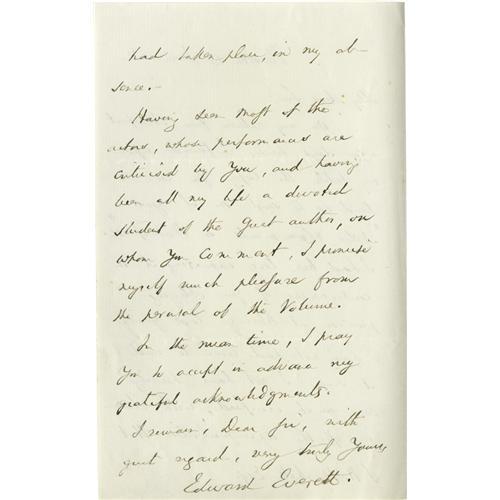 had taken place, in my ab-
sence.-
Having seen most of the
actors, whose performances are
criticised by You, and having
been all my life a devoted
student of the Great author, on
whom You Comment, I promise
myself much pleasure from
the perusal of the Volume.
In the mean time, I pray
You to accept in advance my
grateful acknowledgments.
I remain, Dear Sir, with
great regard, very truly Yours,
Edward Everett.